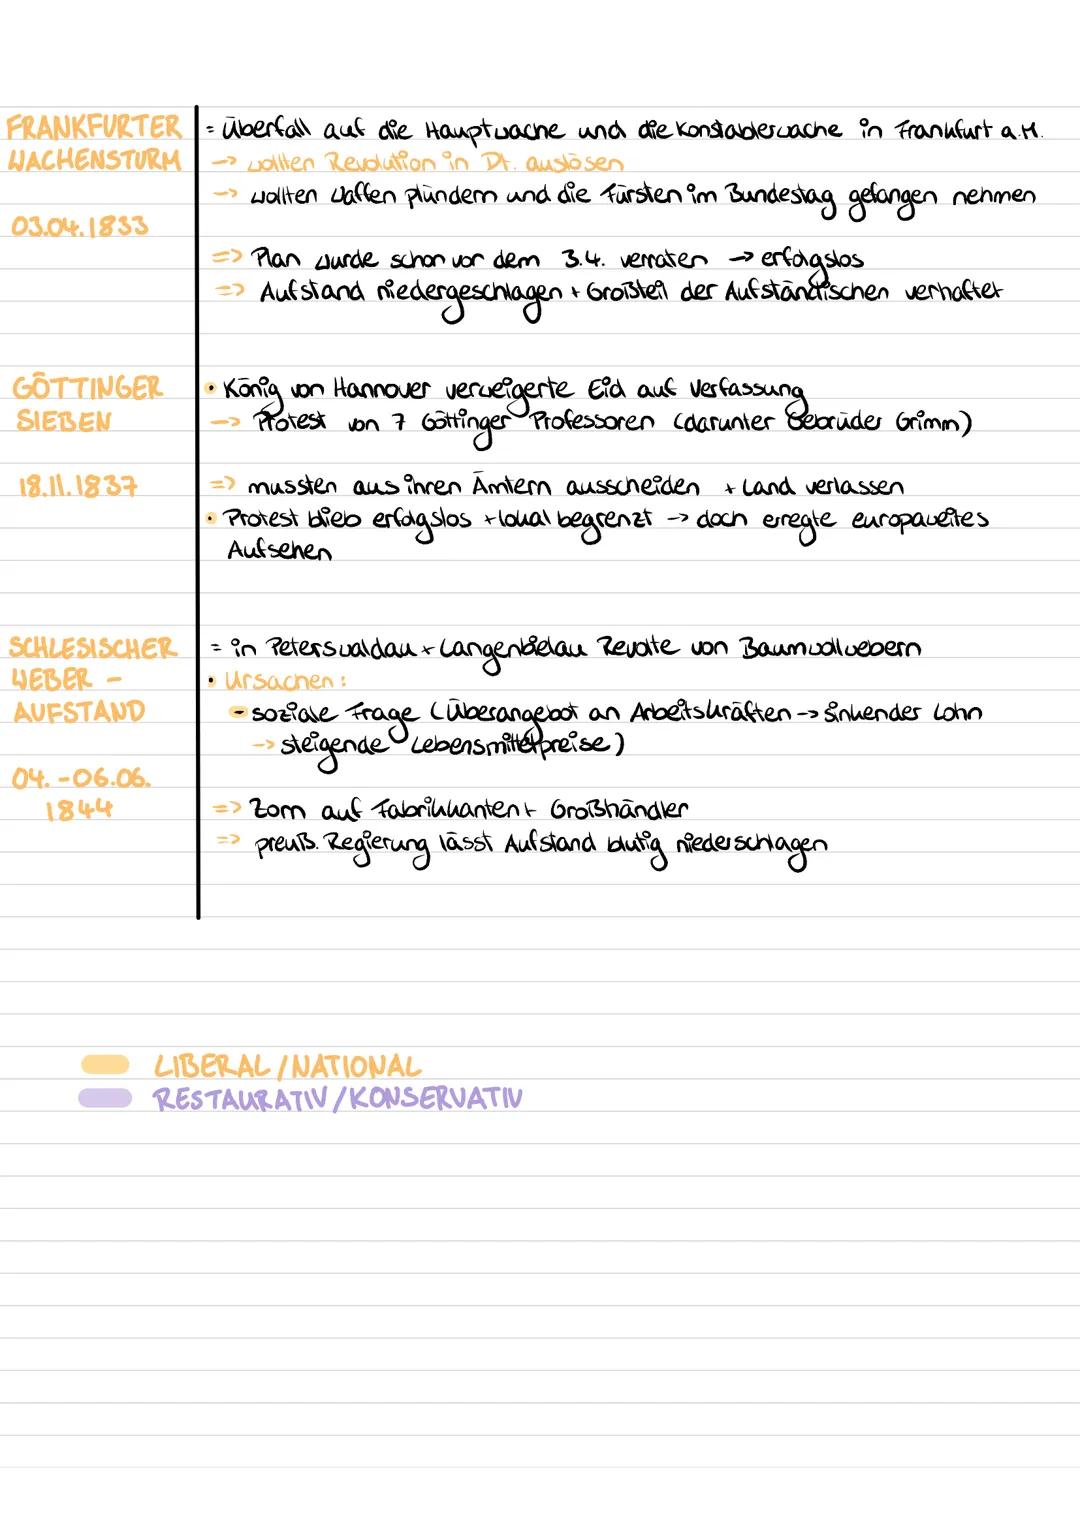 FRANKFURTER WACHENSTURM
03.04.1833
= Überfall auf die Hauptwache und die Konstablerwache in Frankfurt a.M.
-> wollten Revolution in Dt. auslösen
-> wollten Waffen plündern und die Fürsten im Bundestag gefangen nehmen
=> Plan wurde schon vor dem 3.4. verraten -> erfolgslos
=> Aufstand niedergeschlagen + Großteil der Aufständischen verhaftet
GÖTTINGER SIEBEN
18.11.1837
• König von Hannover verweigerte Eid auf Verfassung
-> Protest von 7 Göttinger Professoren (darunter Gebrüder Grimm)
=> mussten aus ihren Ämtern ausscheiden + Land verlassen
• Protest blieb erfolgslos + lokal begrenzt -> doch erregte europaweites
Aufsehen
SCHLESISCHER WEBER-AUFSTAND
04.-06.06.
1844
= in Peterswaldau + Langenbielau Revolte von Baumwollwebern
• Ursachen:
- soziale Frage (Überangebot an Arbeitskräften -> sinkender Lohn
-> steigende Lebensmittelpreise)
=> Zorn auf Fabrikkanten + Großhändler
=> preuß. Regierung lässt Aufstand blutig niederschlagen
LIBERAL/NATIONAL
RESTAURATIV/KONSERVATIV